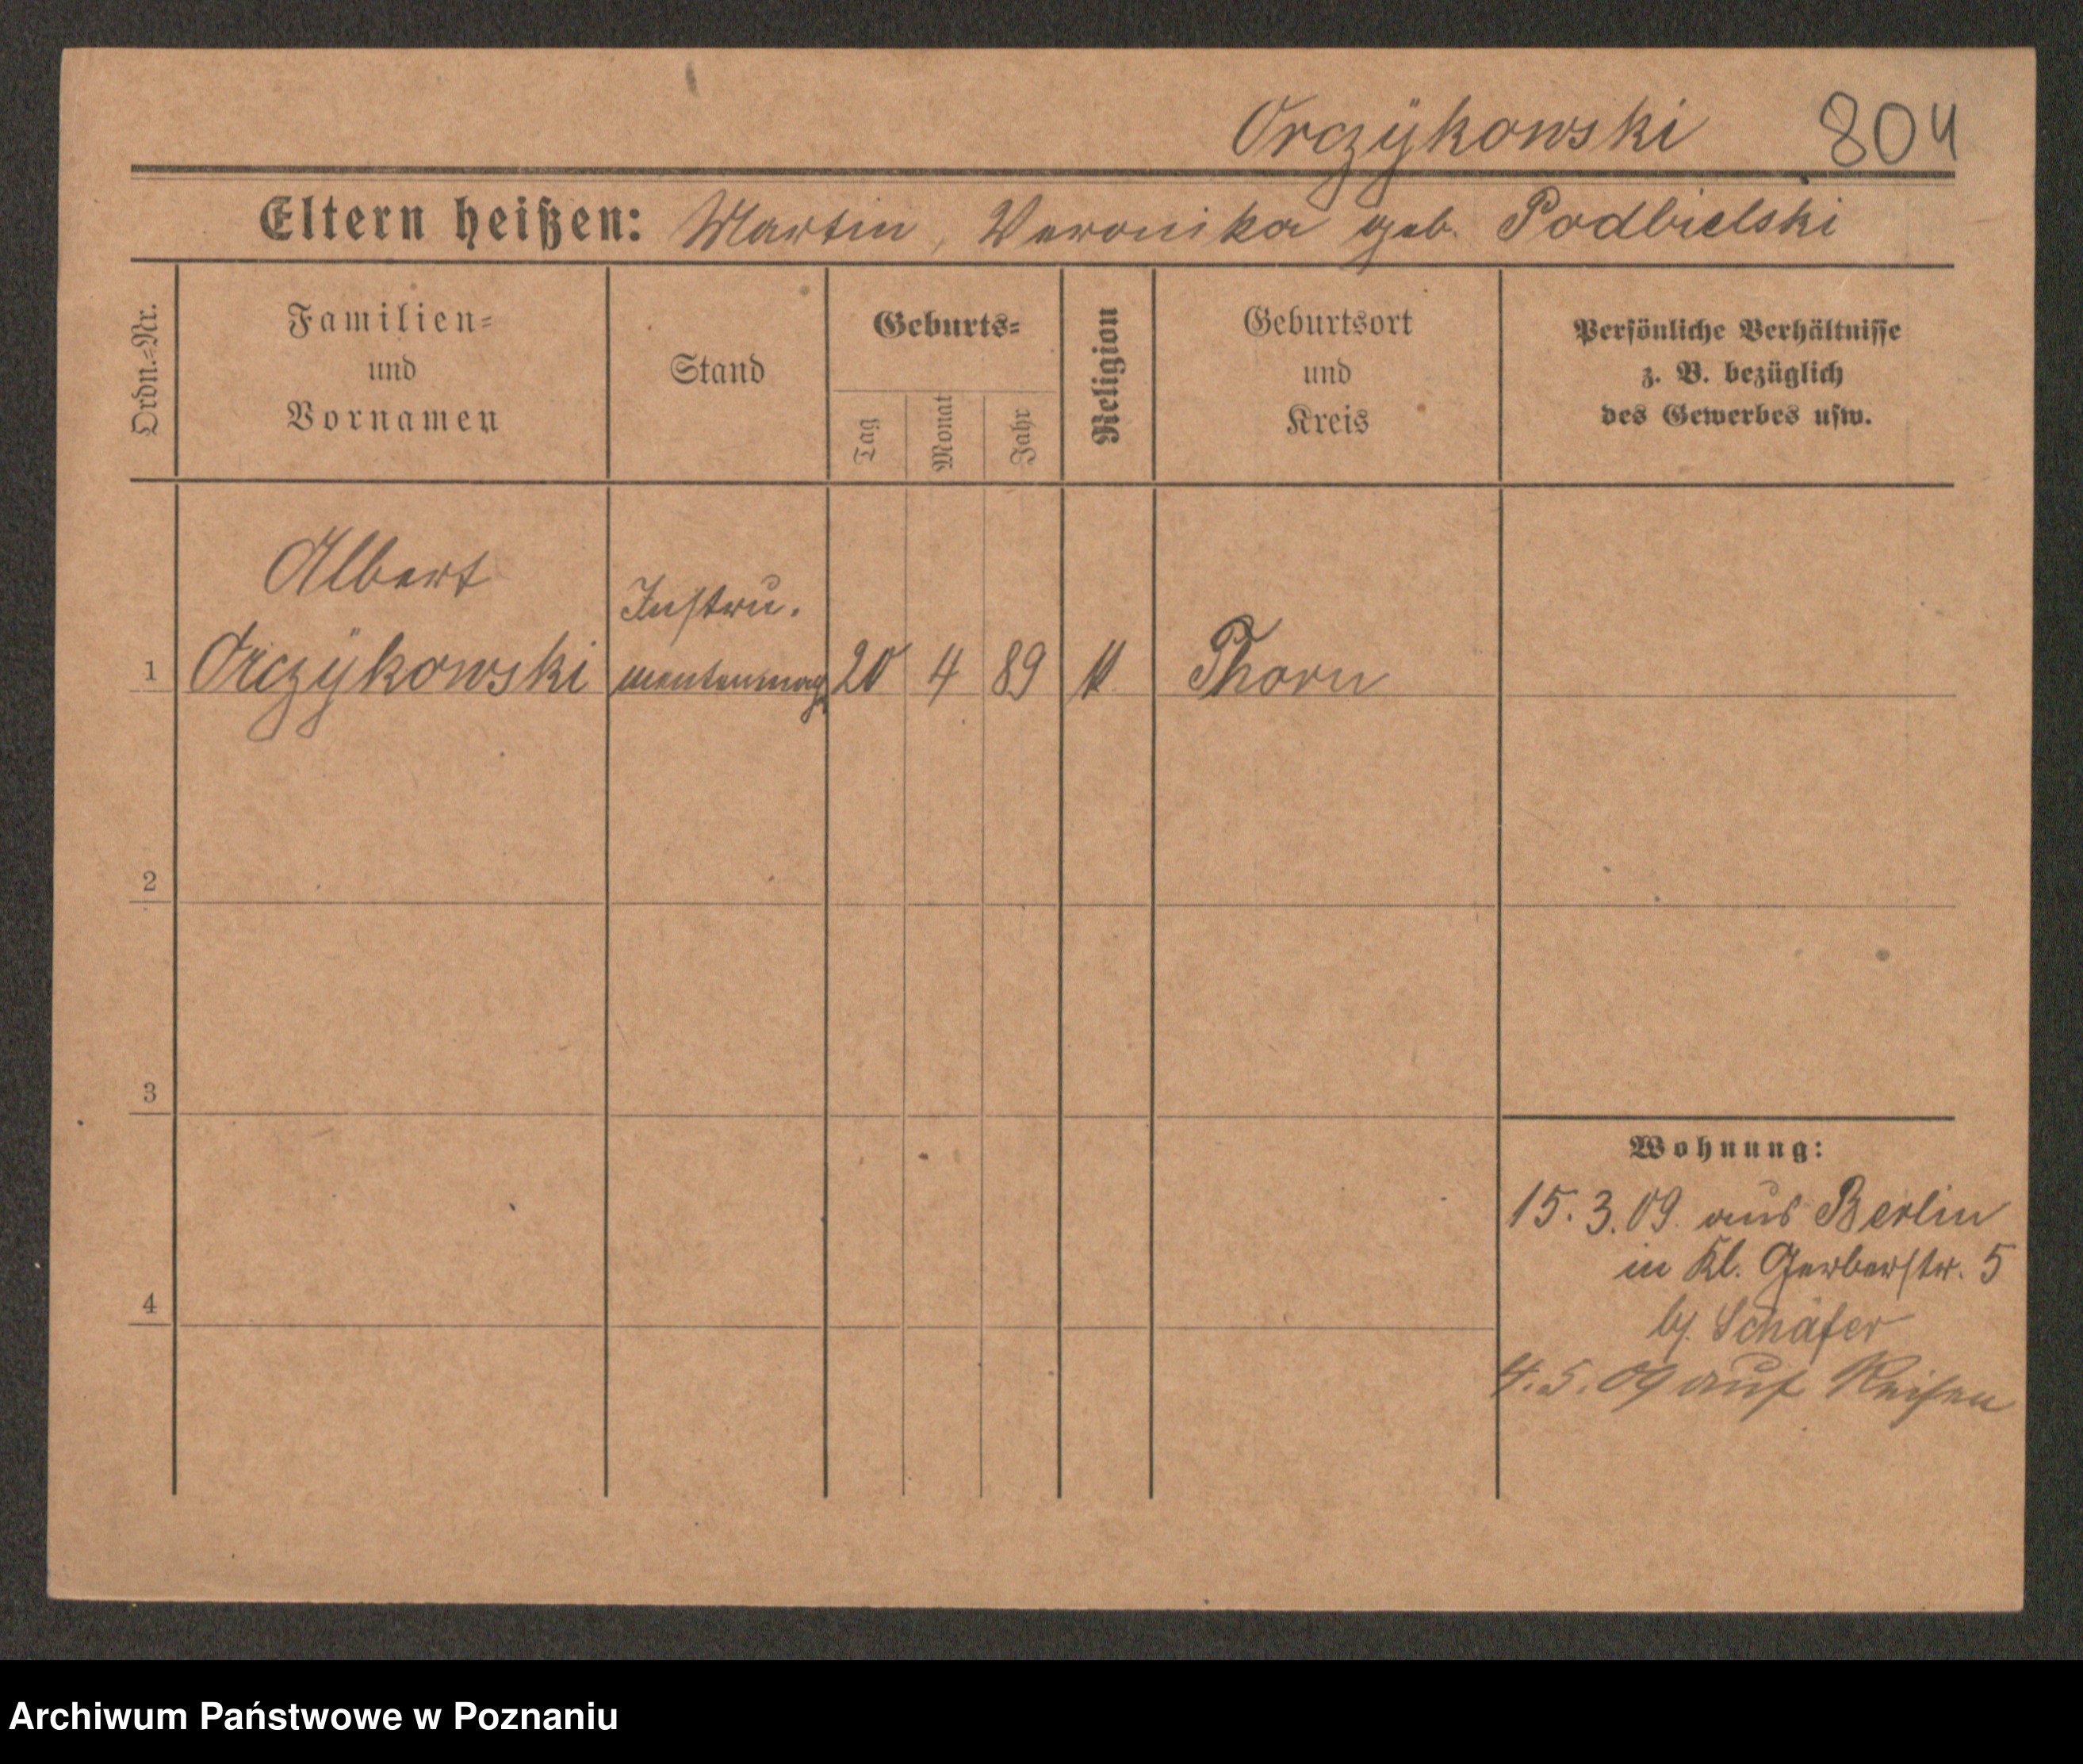 Orczÿkowski 804
Eltern heißen: Martin, Veronika geb. Podbielski
Ordn.=Nr.
Familien=
und
Vornamen
Stand
Geburts=
Tag
Monat
Jahr
Religion
Geburtsort
und
Kreis
Persönliche Verhältnisse
z. B. bezüglich
des Gewerbes usw.
Albert
Instru.
1 Orczÿkowski mentenmach 20 4 89 Thorn
2
3
4
Wohnung:
15.3.09. aus Berlin
in Kl. Gerberstr. 5
bj. Schäfer
4.5.09 auf Reisen
Archiwum Państwowe w Poznaniu